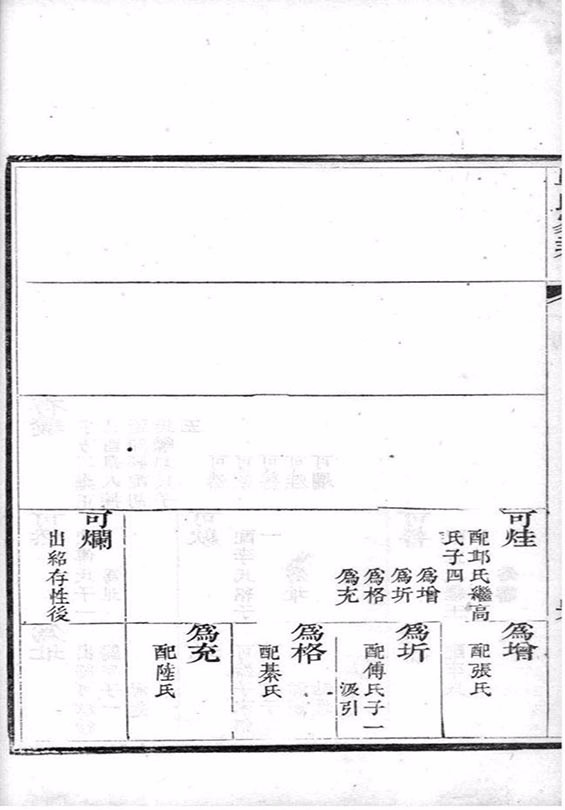 可烓
配邙氏繼高
氏子四
爲增
爲圻
爲格
爲充
可爛
出紹存性後
爲增
配張氏
爲圻
配傅氏子一
汲引
爲格
配綦氏
爲充
配陸氏